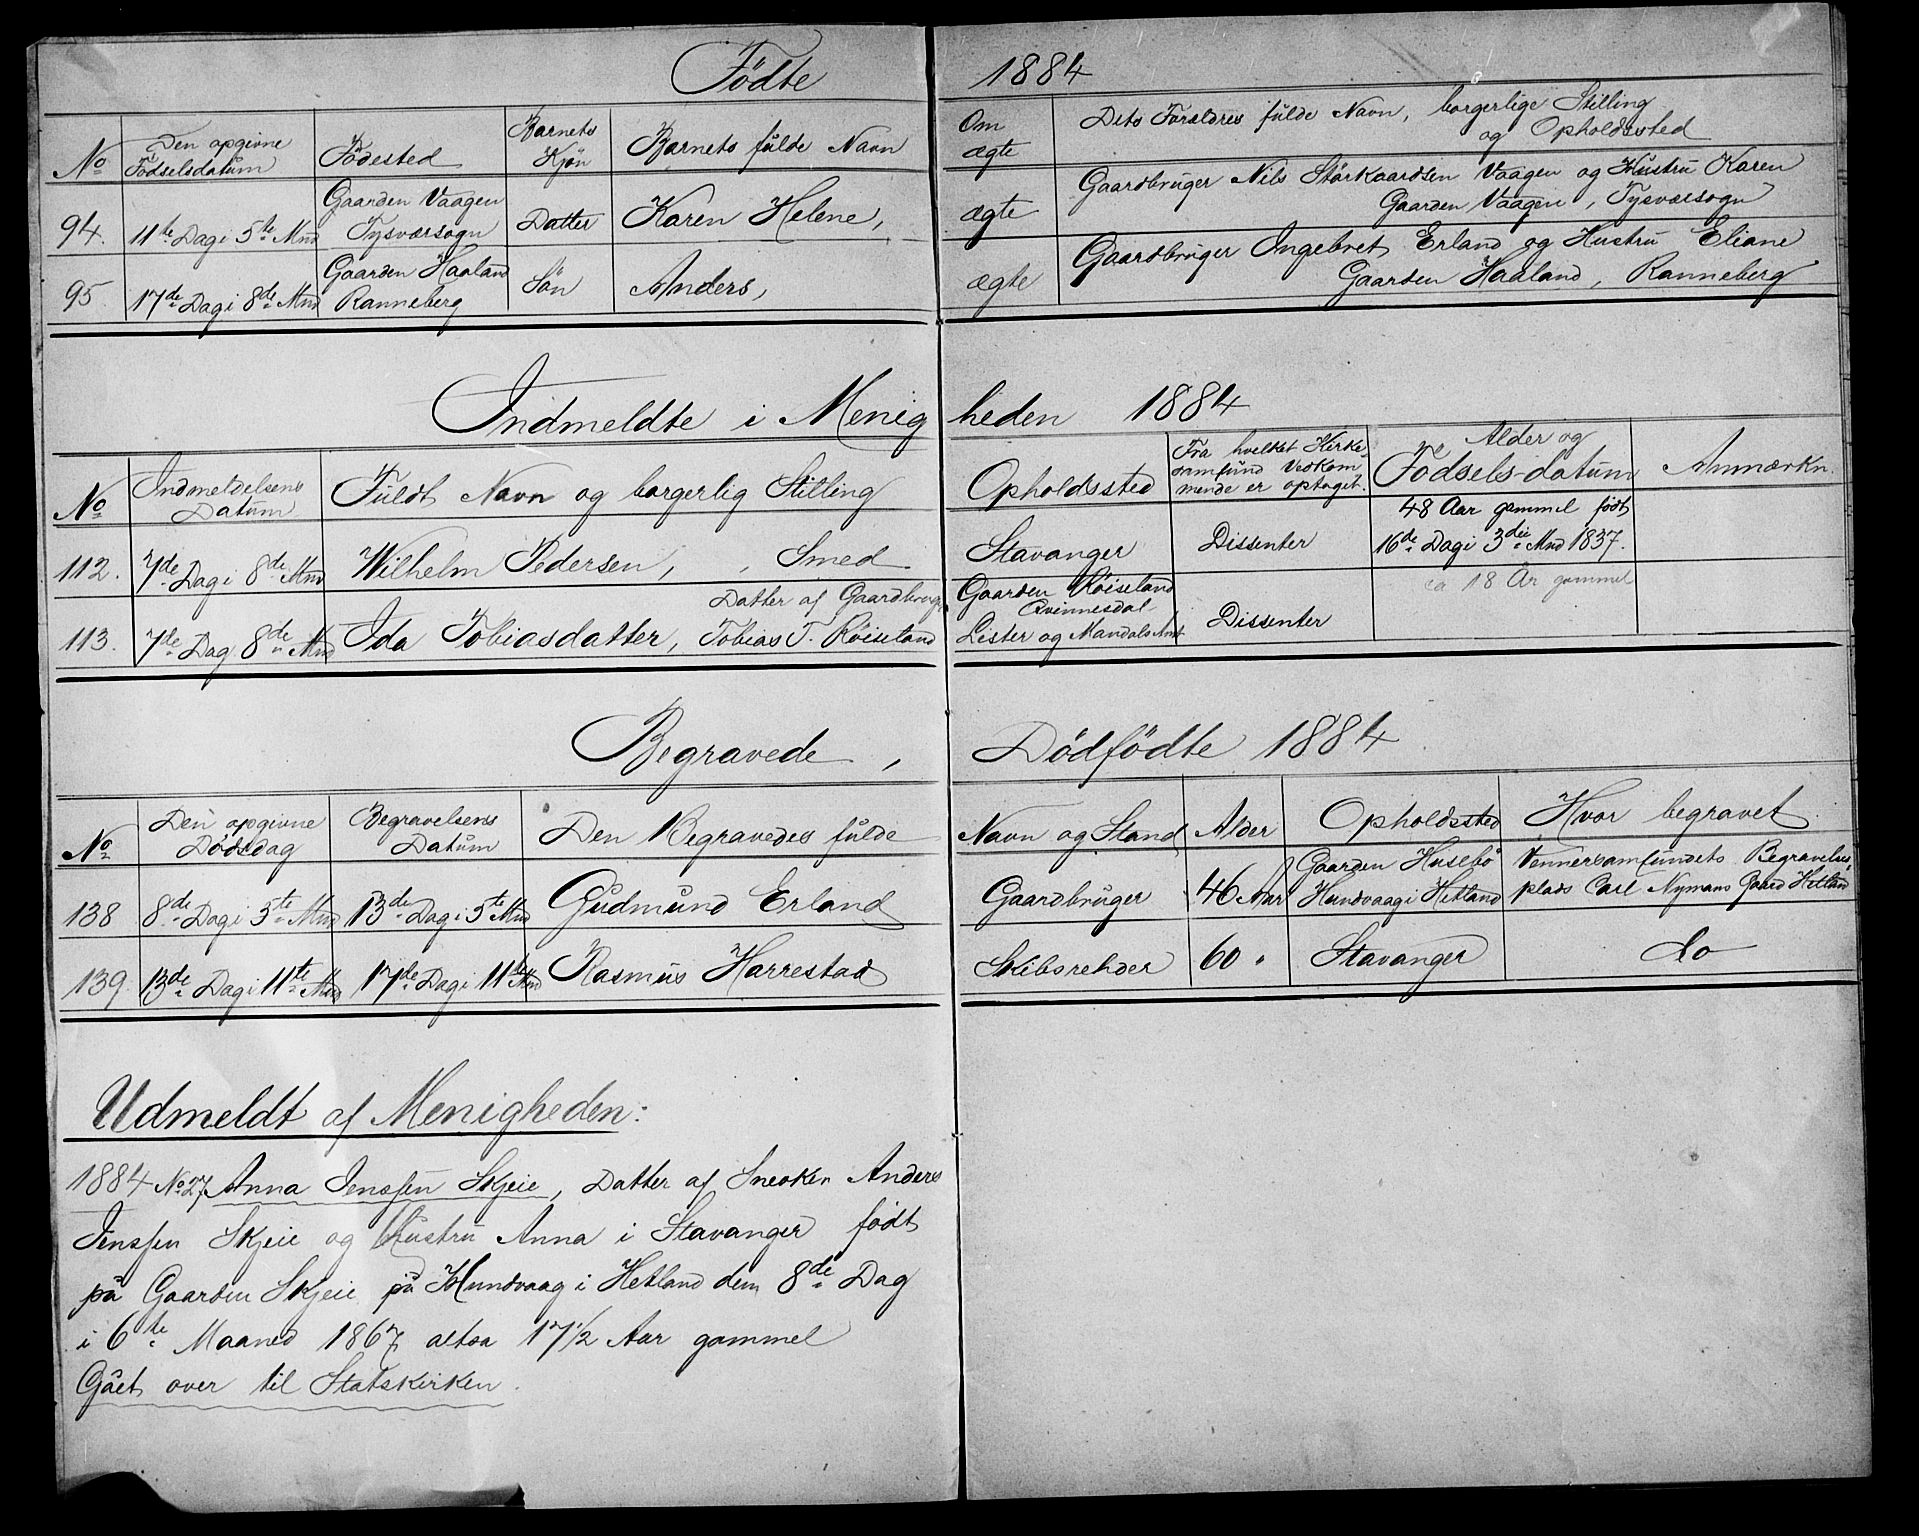 Födte 1884
No Den opgivne Födselsdatum Födested Barnets Kjön Barnets fulde Navn Om ægte Dets Forældres fulde Navn, borgerlige Stilling og Opholdssted
94. 11te Dag i 5te Mnd Gaarden Vaagen Tysværsogn Datter Karen Helene, ægte Gaardbruger Nils Störkaardsen Vaagen og Hustru Karen Gaarden Vaagen, Tysværsogn
95. 17de Dag i 8de Mnd Gaarden Haaland Ranneberg Sön Anders, ægte Gaardbruger Ingebret Erland og Hustru Eliane Gaarden Haaland, Ranneberg
Indmeldte i Menigheden 1884
No Indmeldelsens Datum Fuldt Navn og borgerlig Stilling Opholdssted Fra hvilket Kirkesamfund Vedkommende er optaget. Alder og Födsels-datum Anmærkn.
112. 7de Dag i 8de Mnd Wilhelm Pedersen, Smed Stavanger Dissenter 48 Aar gammel født 16de Dag i 3die Mnd 1837.
113. 7de Dag 8de Mnd Ida Tobiasdatter, Datter af Gaardbruger Tobias T. Röiseland Gaarden Röiseland Qvinnesdal Lister og Mandals Amt Dissenter ca 18 År gammel
Begravede, Dödfödte 1884
No Den opgivne Dödsdag Begravelsens Datum Den Begravedes fulde Navn og Stand Alder Opholdssted Hvor begravet
138 8de Dag i 5te Mnd 13de Dag i 5te Mnd Gudmund Erland Gaardbruger 46 Aar Gaarden Husebö Hundvaag i Hetland Vennersamfundets Begravelsesplads Carl Nymans Gaard Hetland
139. 13de Dag i 11te Mnd 17de Dag i 11te Mnd Rasmus Harrestad Skibsrehder 60 " Stavanger do
Udmeldt af Menigheden:
1884 No 27 Anna Jenssen Skjeie, Datter af Sneker Anders
Jenssen Skjeie og Hustru Anna i Stavanger født
på Gaarden Skjeie på Hundvaag i Hetland dem 8de Dag
i 6te Maaned 1867 altsa 17 1/2 Aar gammel
Gået over til Statskirken.